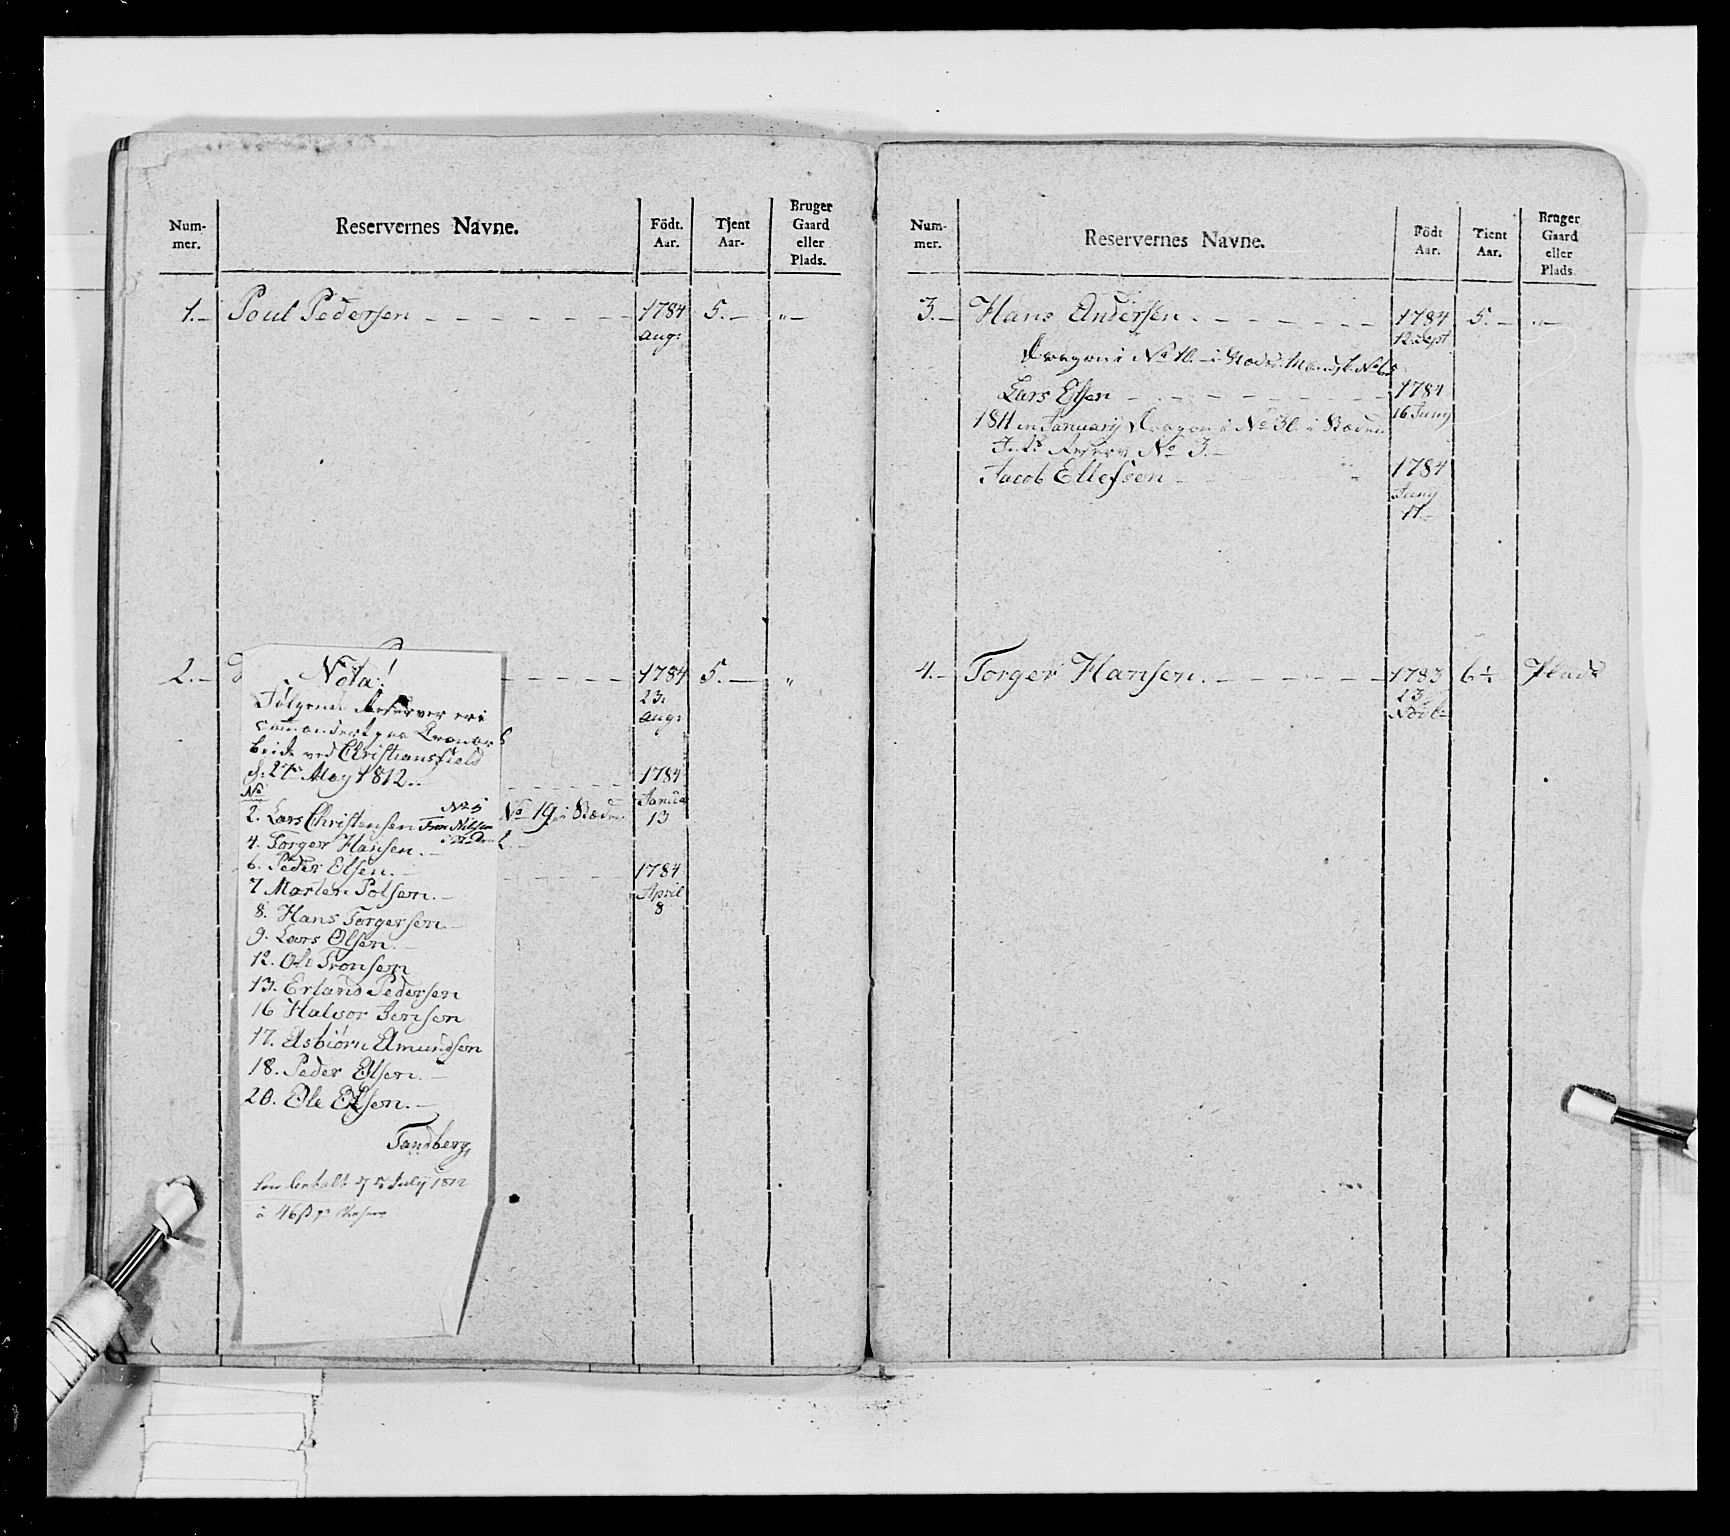 Num-
mer.
Reservernes Navne.
Födt.
Aar.
Tjent
Aar-
Bruger
Gaard
eller
Plads.
1.— Poul Pedersen — 1784 5.— „—
Aug:
2.— 1784 5.— „
23.
Aug:
1784
Januar
No 19 i
13
2.
1784
April
8
Nota!
Følgende Reserver er
commandert paa
beide ved Christiansfield
d. 27 May 1812.
No
2. Lars Christensen No 5
Tron Nilsen
4. Torger Hansen.
6. Peder Olsen.
7 Morten Polsen.
8. Hans Torgersen.
9. Lars Olsen.
12. Ole Tronsen
13. Erland Pedersen
16 Halvor Jensen
17. Asbiørn Amundsen
18. Peder Olsen.
20. Ole Olsen.
Tandberg
July 1812
à 46 ß
Num-
mer.
Reservernes Navne.
Födt
Aar.
Tient
Aar.
Bruger
Gaard
eller
Plads.
3.— Hans Andersen 1784 5.— „—
12 Sept
Dragon i No 10.— i
Lars Olsen 1784
16 Juny
1811 in January Dragon i No 30. i
Reserv No 3.—
Jacob Ellefsen 1784
Juny
17
4.— Torger Hansen. 1783 6½ Plads
23
Novb: